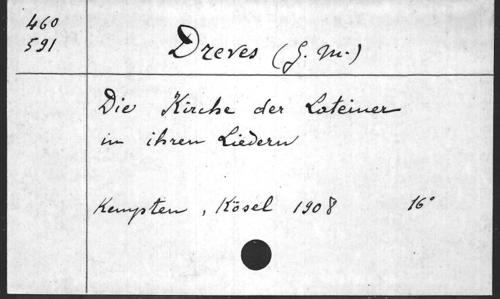 460
591
Dreves (G. M.)
Die Kirche der Lateiner
in ihren Liedern
Kempten, Kösel 1908 16°